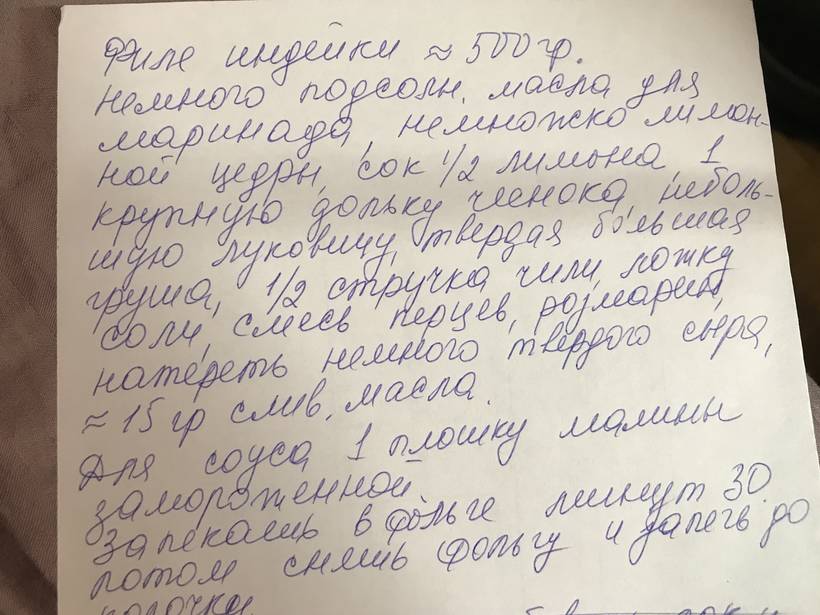 Филе индейки ≈ 500 гр.
немного подсолн. масла для
маринада, немножко лимон-
ной цедры, сок 1/2 лимона, 1
крупную дольку чеснока, неболь-
шую луковицу, твердая большая
груша, 1/2 стручка чили, ложку
соли, смесь перцев, розмарин,
натереть немного твердого сыра,
≈ 15 гр слив. масла.
Для соуса 1 плошку малины
замороженной.
Запекаешь в фольге минут 30.
потом снять фольгу и запечь до
корочки.